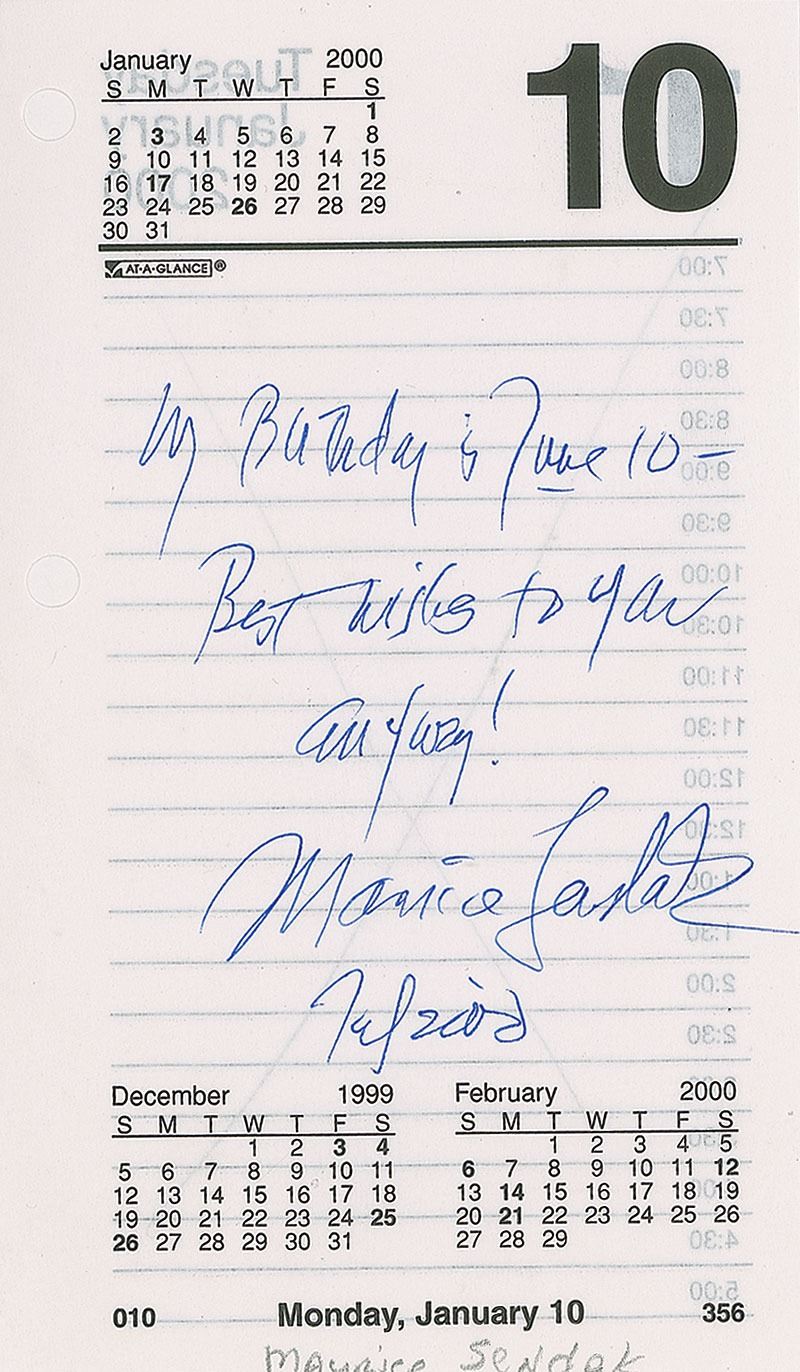 January 2000
S M T W T F S
1
2 3 4 5 6 7 8
9 10 11 12 13 14 15
16 17 18 19 20 21 22
23 24 25 26 27 28 29
30 31
10
AT-A-GLANCE®
7:00
7:30
8:00
8:30
9:00
9:30
10:00
10:30
11:00
11:30
12:00
12:30
1:00
1:30
2:00
2:30
4:30
5:00
Tuesday
January
My Birthday is June 10 –
Best wishes to you
anyway!
Maurice Sendak
December 1999
S M T W T F S
1 2 3 4
5 6 7 8 9 10 11
12 13 14 15 16 17 18
19 20 21 22 23 24 25
26 27 28 29 30 31
February 2000
S M T W T F S
1 2 3 4 5
6 7 8 9 10 11 12
13 14 15 16 17 18 19
20 21 22 23 24 25 26
27 28 29
010 Monday, January 10 356
Maurice Sendak